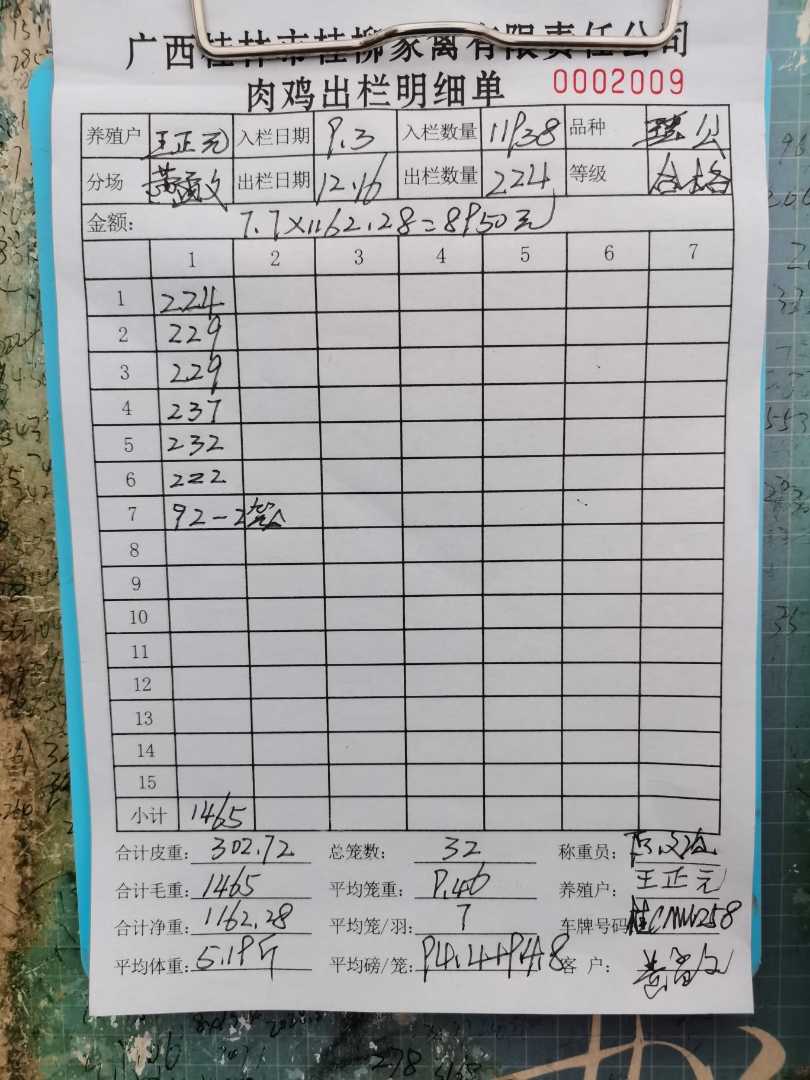 广西桂林市桂柳家禽有限责任公司
肉鸡出栏明细单 0002009
养殖户 王正元 入栏日期 9.3 入栏数量 11938 品种 公
分场 出栏日期 12.16 出栏数量 224 等级 合格
金额: 7.7×1162.28=8950元
1 2 3 4 5 6 7
1 224
2 229
3 229
4 237
5 232
6 222
7 92-2笼
8
9
10
11
12
13
14
15
小计 1465
合计皮重: 302.72 总笼数: 32 称重员:
合计毛重: 1465 平均笼重: 9.46 养殖户: 王正元
合计净重: 1162.28 平均笼/羽: 7 车牌号码:
平均体重: 5.19斤 平均磅/笼: 94.4+94.8 客户: